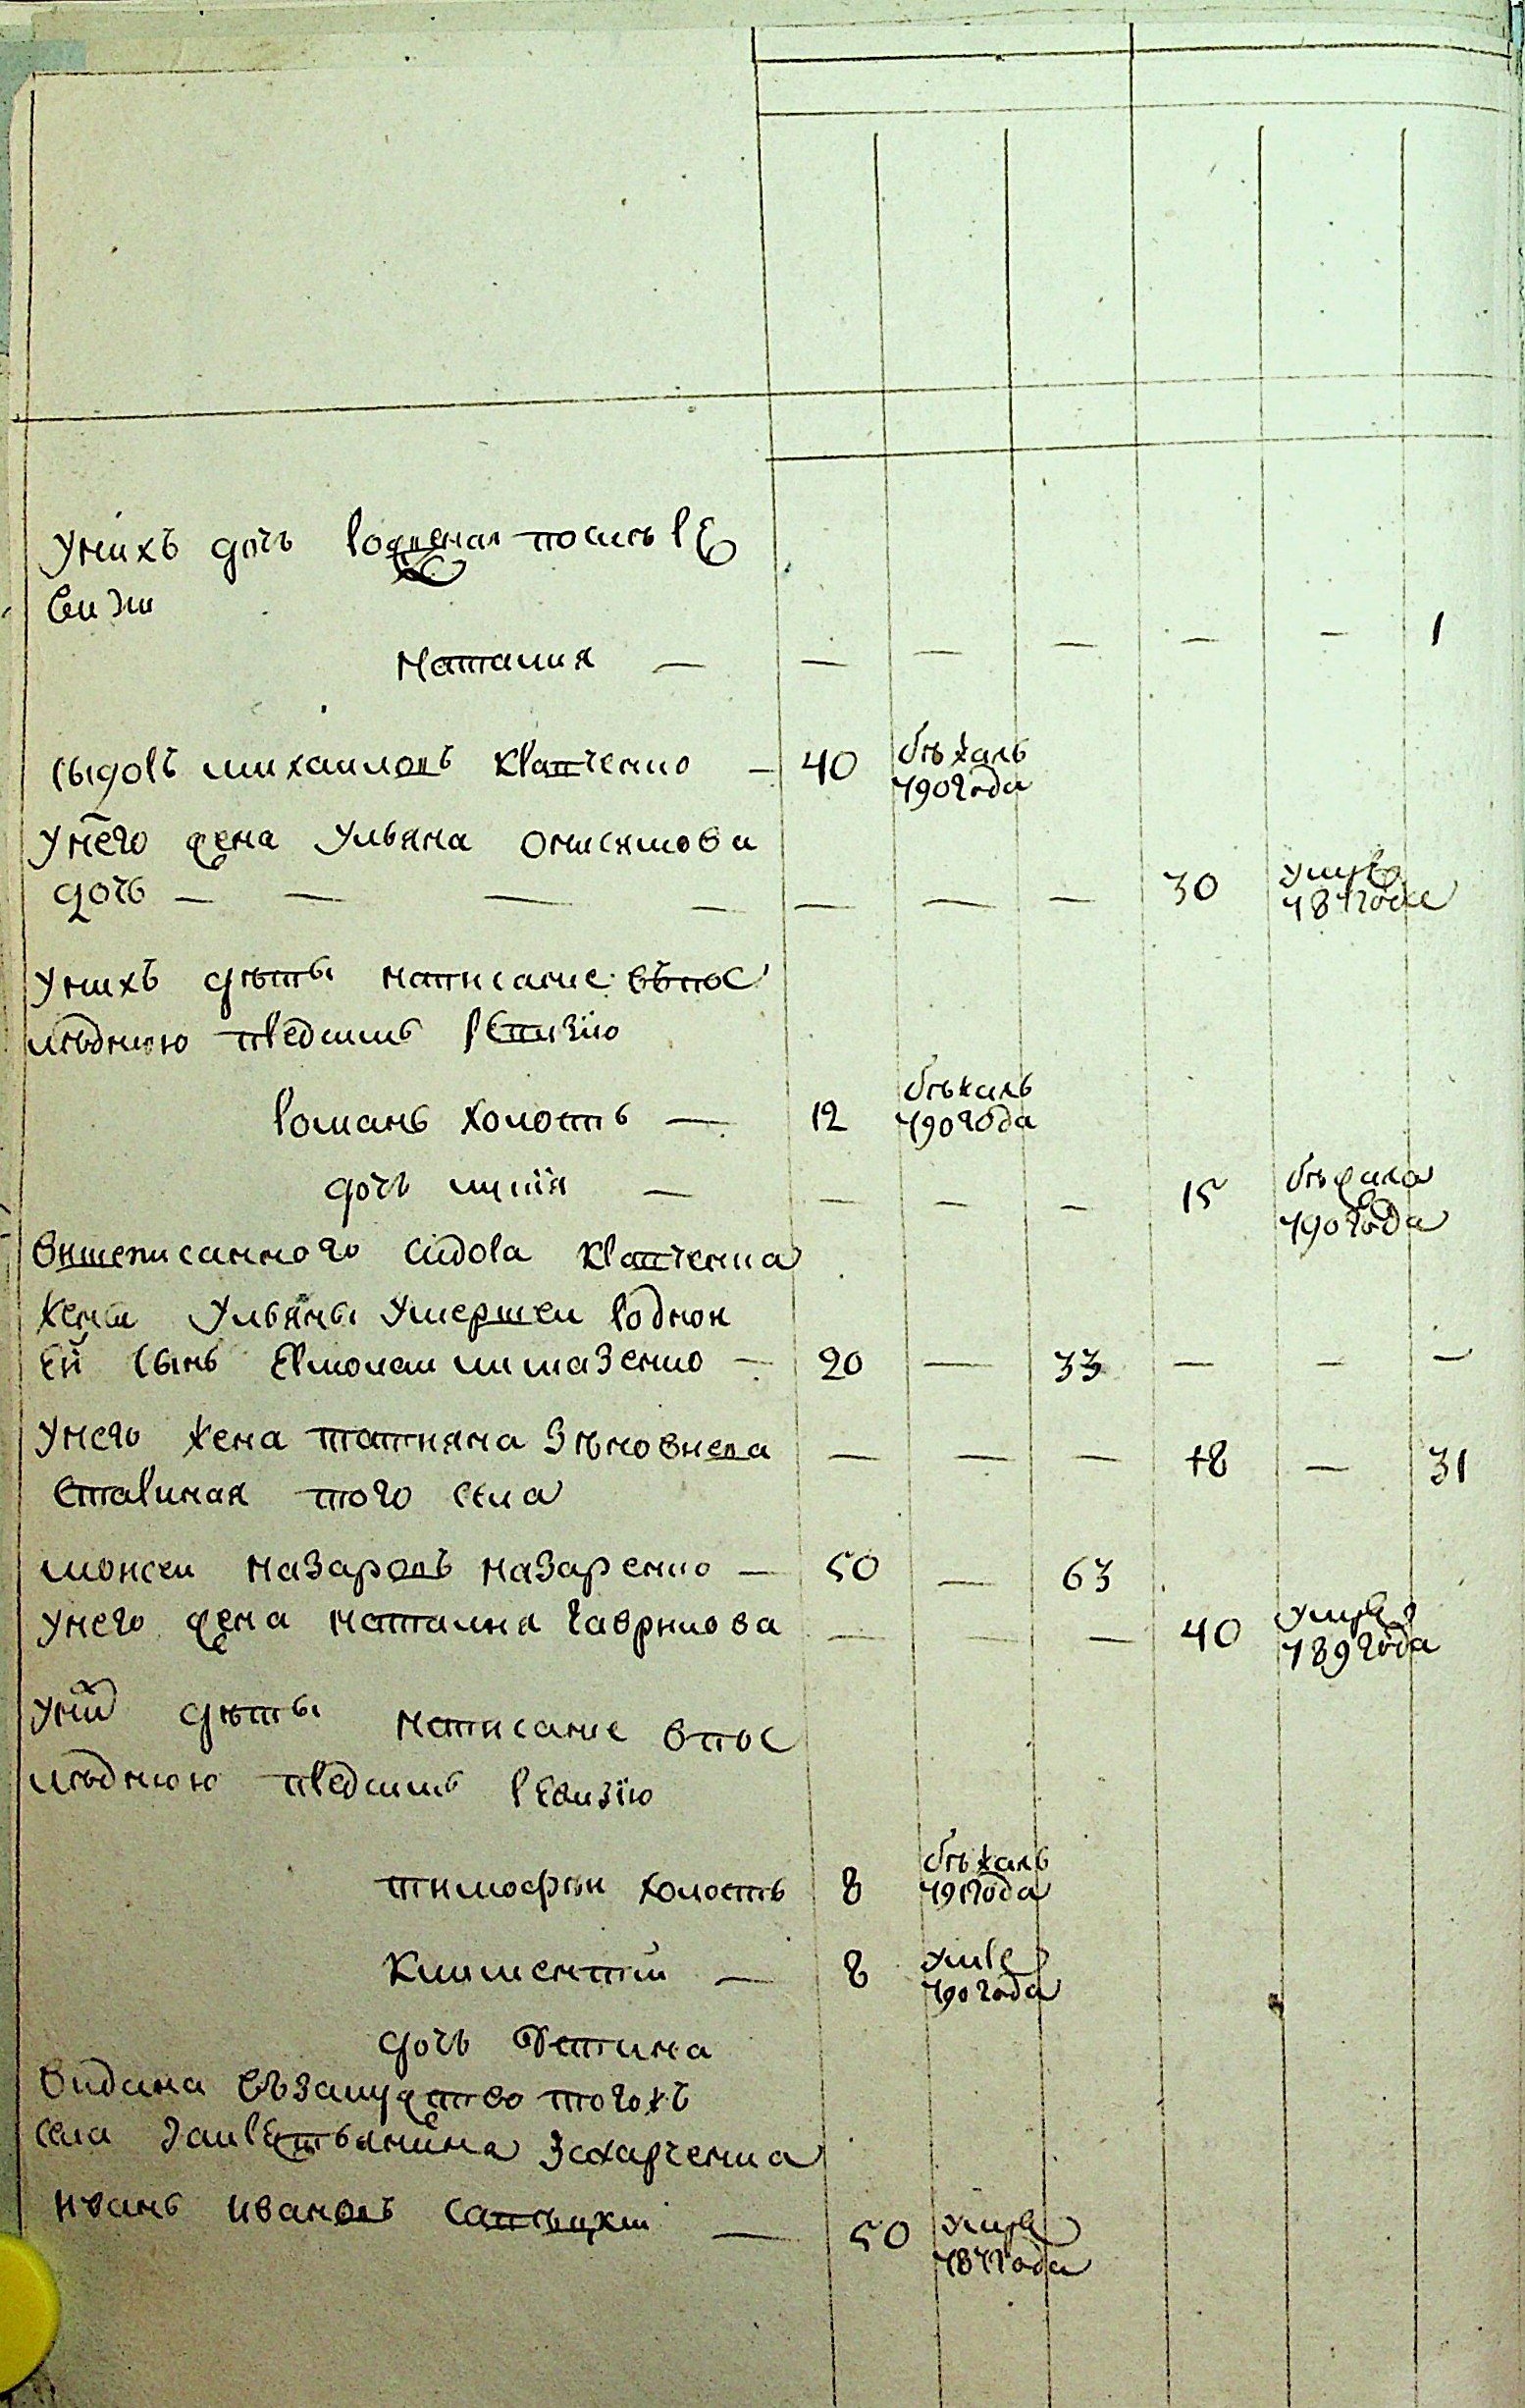 Унихъ дочь рожденая после ре
визи
Наталия — — — — — — 1
Сыдоръ михаиловъ Крапченко — 40 бѣжалъ
790 года
Унего жена Ульяна онисимова
дочь — — — — — — — 30 умре
787 года
Унихъ дѣты написание въпос
лѣднюю предсимъ ревизію
романъ холостъ — 12 бѣжалъ
790 года
дочь — — — — 15 бѣжала
790 года
Вишеписанного сидора Крапченка
жены Ульяны умершеи родной
ей сынъ Ермолаи — 20 — 33 — — —
Унего жена татияна — — — 18 — 31
стариная того села
моисеи назаровъ назаренко — 50 — 63
Унего жена наталия гаврилова — — — 40 умре
789 года
Унихъ дѣты написание впос
лѣднюю предсимъ ревизію
тимофѣи холостъ 8 бѣжалъ
791 года
Климентій — 8 умре
790 года
дочь
видана въ замужство тогожъ
села Захарченка
иванъ ивановъ — 50 умре
787 года